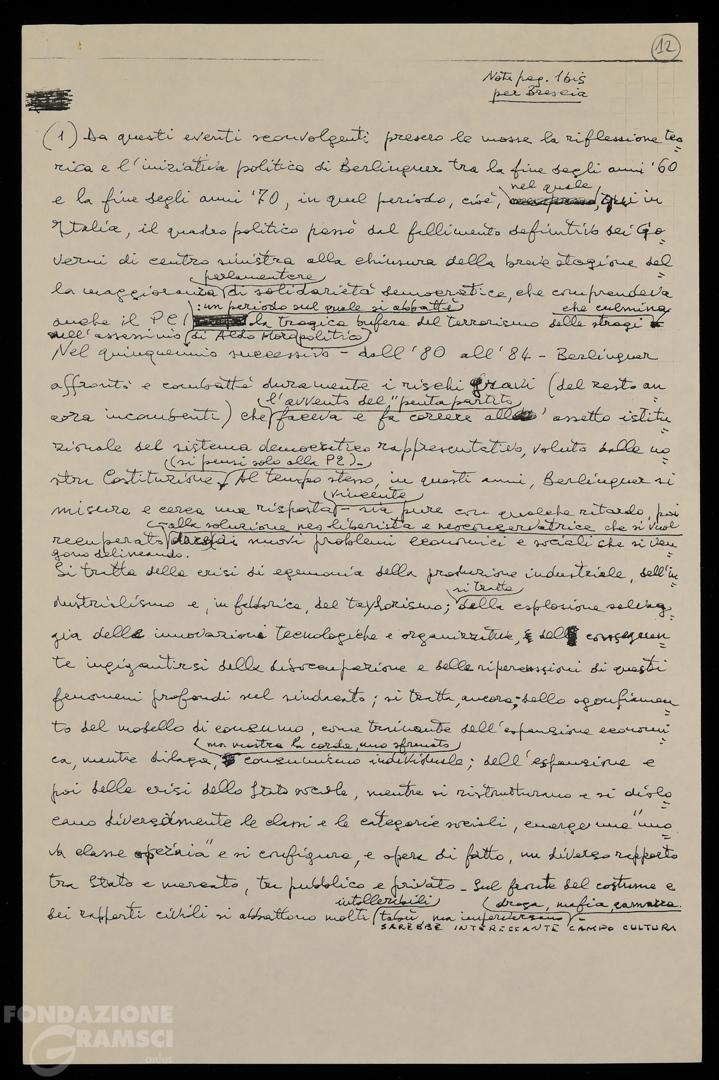 12
Note pag. 1 bis
per Brescia
(1) Da questi eventi sconvolgenti presero le mosse la riflessione teo=
rica e l'iniziativa politica di Berlinguer tra la fine degli anni '60
nel quale
e la fine degli anni '70, in quel periodo, cioè, qui in
Italia, il quadro politico passò dal fallimento definitivo dei Go=
verni di centro sinistra alla chiusura della breve stagione del=
parlamentare
la maggioranza di solidarietà democratica, che comprendeva
: un periodo sul quale si abbatté che culmina
anche il PCI la tragica bufera del terrorismo delle stragi
nell'assassinio di Aldo Moro politico
Nel quinquennio successivo - dall'80 all'84 - Berlinguer
affrontò e combatté duramente i rischi gravi (del resto an=
l'avvento del "pentapartito
cora incombenti) che faceva e fa correre all'assetto istitu=
zionale del sistema democratico rappresentativo, voluto dalla no=
(si pensi solo alla P2)-
stra Costituzione. Al tempo stesso, in questi anni, Berlinguer si
vincente
misura e cerca una risposta - sia pure con qualche ritardo, poi
alla soluzione neoliberista e neoconservatrice che si vuol
recuperato dare ai nuovi problemi economici e sociali che si ven=
gono delineando.
Si tratta della crisi di egemonia della produzione industriale, dell'in=
si tratta
dustrialismo e, in fabbrica, del taylorismo; della esplosione selvag=
gia delle innovazioni tecnologiche e organizzative, del conseguen=
te ingigantirsi della disoccupazione e delle ripercussioni di questi
fenomeni profondi sul sindacato; si tratta, ancora, dello sgonfiamen=
to del modello di consumo, come trainante dell'espansione economi=
ma mostra la corda, uno sfrenato
ca, mentre dilaga, consumismo individuale; dell'espansione e
poi della crisi dello Stato sociale, mentre si ristrutturano e si dislo=
cano diversamente le classi e le categorie sociali, emerge una "nuo=
va classe operaia" e si configura, e opera di fatto, un diverso rapporto
tra Stato e mercato, tra pubblico e privato - Sul fronte del costume e
intollerabili droga, mafia, camorra.
dei rapporti civili si abbattono molti tabù, ma imperversano -
SAREBBE INTERESSANTE CAMPO CULTURA
FONDAZIONE
GRAMSCI
onlus